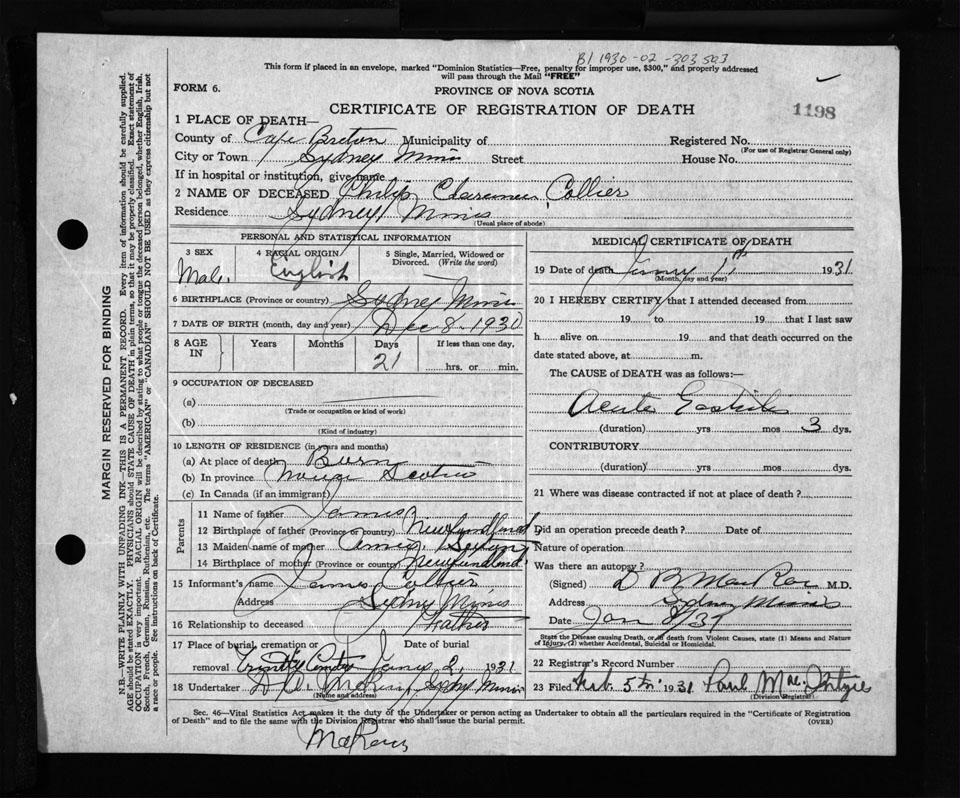 B/1930-02-303503
This form if placed in an envelope, marked "Dominion Statistics—Free, penalty for improper use, $300," and properly addressed
will pass through the Mail "FREE"
FORM 6.
PROVINCE OF NOVA SCOTIA
CERTIFICATE OF REGISTRATION OF DEATH
1198
1 PLACE OF DEATH—
County of Cape Breton Municipality of Registered No.
(For use of Registrar General only)
City or Town Sydney Mines Street House No.
If in hospital or institution, give name
2 NAME OF DECEASED Philip Clarence Collier
Residence Sydney Mines
(Usual place of abode)
PERSONAL AND STATISTICAL INFORMATION
3 SEX 4 RACIAL ORIGIN 5 Single, Married, Widowed or
Divorced. (Write the word)
Male. English
6 BIRTHPLACE (Province or country) Sydney Mines
7 DATE OF BIRTH (month, day and year) Dec 8. 1930
8 AGE IN Years Months Days If less than one day,
21 hrs. or min.
9 OCCUPATION OF DECEASED
(a)
(Trade or occupation or kind of work)
(b)
(Kind of industry)
10 LENGTH OF RESIDENCE (in years and months)
(a) At place of death Born
(b) In province Nova Scotia
(c) In Canada (if an immigrant)
Parents
11 Name of father James
12 Birthplace of father (Province or country) Newfoundland
13 Maiden name of mother
14 Birthplace of mother (Province or country) Newfoundland.
15 Informant's name James Collier
Address Sydney Mines
16 Relationship to deceased Father
17 Place of burial, cremation or Date of burial
removal Trinity 2, 1931
18 Undertaker Sydney Mines
(Name and address)
MEDICAL CERTIFICATE OF DEATH
19 Date of death 1931
(Month, day and year)
20 I HEREBY CERTIFY that I attended deceased from
19 to 19 that I last saw
h alive on 19 and that death occurred on the
date stated above, at m.
The CAUSE of DEATH was as follows:—
Acute Gastritis
(duration) yrs mos 3 dys.
CONTRIBUTORY
(duration) yrs mos dys.
21 Where was disease contracted if not at place of death?
Did an operation precede death? Date of
Nature of operation
Was there an autopsy?
(Signed) D B MacRae M.D.
Address Sydney Mines
Date Jan 8/31
State the Disease causing Death, or, in death from Violent Causes, state (1) Means and Nature
of Injury, (2) whether Accidental, Suicidal or Homicidal.
22 Registrar's Record Number
23 Filed 5th 1931 Paul
(Division Registrar)
Sec. 46—Vital Statistics Act makes it the duty of the Undertaker or person acting as Undertaker to obtain all the particulars required in the "Certificate of Registration
of Death" and to file the same with the Division Registrar who shall issue the burial permit.
(OVER)
MARGIN RESERVED FOR BINDING
N.B.—WRITE PLAINLY WITH UNFADING INK—THIS IS A PERMANENT RECORD. Every item of information should be carefully supplied.
AGE should be stated EXACTLY. PHYSICIANS should STATE CAUSE OF DEATH in plain terms, so that it may be properly classified. Exact statement of
OCCUPATION is very important. RACIAL ORIGIN will be described by stating to what people or tongue the deceased person belonged, whether English, Irish,
Scotch, French, German, Russian, Ruthenian, etc. The terms "AMERICAN" or "CANADIAN" SHOULD NOT BE USED as they express citizenship but not
a race or people. See instructions on back of Certificate.